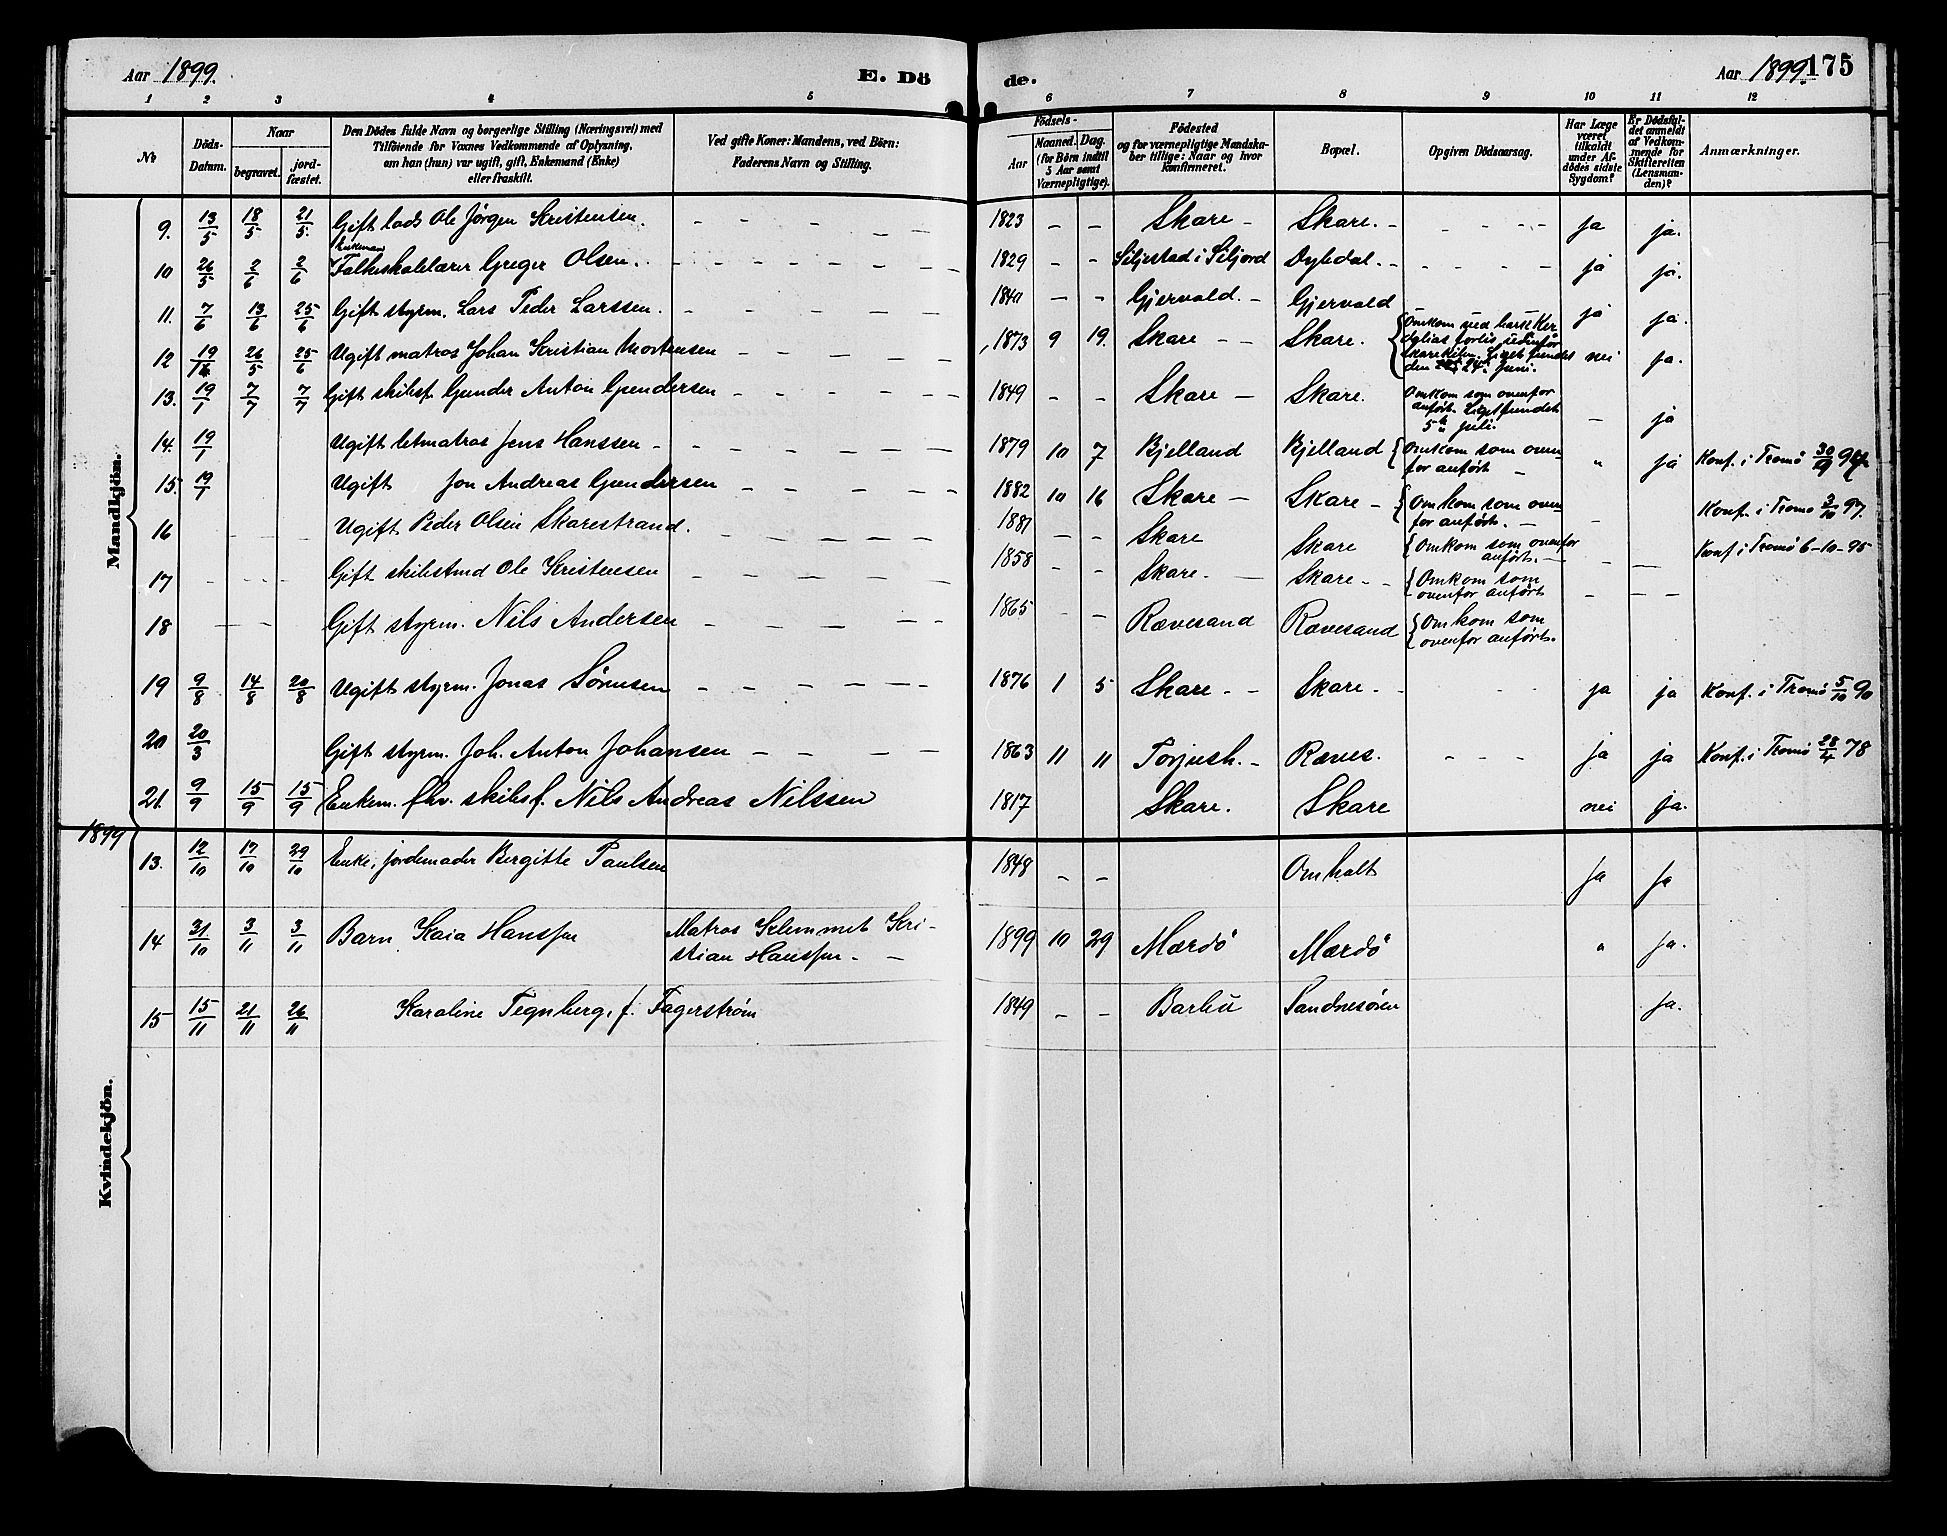 Aar 1899.
E. Dö
de.
Aar 1899.
175
1 2 3 4 5 6 7 8 9 10 11 12
No
Döds-Datum.
Naar
begravet.
jord-fæstet.
Den Dödes fulde Navn og borgerlige Stilling (Næringsvei) med
Tilföiende for Voxnes Vedkommende af Oplysning,
om han (hun) var ugift, gift, Enkemand (Enke)
eller fraskilt.
Ved gifte Koner: Mandens, ved Börn:
Faderens Navn og Stilling.
Födsels-
Aar
Maaned. Dag.
(for Börn indtil
5 Aar samt
Værnepligtige).
Födested
og for værnepligtige Mandska-
ber tillige: Naar og hvor
konfirmeret.
Bopæl.
Opgiven Dödsaarsag.
Har Læge
været
tilkaldt
under Af-
dödes sidste
Sygdom?
Er Dödsfal-
det anmeldt
af Vedkom-
mende for
Skifteretten
(Lensman-
den)?
Anmærkninger.
Mandkjön.
9. 13/5 18/5 21/5 Gift lods Ole Jörgen Kristensen. 1823 Skare Skare. ja ja.
10 26/5 2/6 2/6 Enkeman Folkeskolelærer Greger Olsen. 1829 Siljestad i Siljord Dybdal. ja ja.
11. 7/6 13/6 25/6 Gift styrm. Lars Peder Larssen. 184 Gjervold. Gjervold ja ja.
12 19/1 26/5 25/6 Ugift matros Johan Kristian Mortensen 1873 9 19. Skare Skare. Omkom ved bark
forlis
Skarekilen. Liget fundet
den 24 Juni. nei ja.
13. 19/1 7/7 7/7 Gift skibsf. Gunder Anton Gundersen 1849 Skare Skare. Omkom som ovenfor
anført. Liget fundet
5te juli. ja
14. 19/1 Ugift letmatros Jens Hanssen 1879 10 7 Bjelland Bjelland Omkom som oven-
for anført " ja Konf. i Tromö 30/9 94
15. 19/1 Ugift Jon Andreas Gundersen 1882 10 16 Skare Skare Omkom som oven
for anført. Konf. i Tromö 3/10 97.
16 Ugift Peder Olsen Skarestrand. 1881 Skare Skare Omkom som ovenfor
anført. Konf. i Tromö 6-10-95
17 Gift skibstmd Ole Kristensen 1858 Skare. Skare. Omkom som
ovenfor anført
18 Gift styrm. Nils Andersen 1865 Rævesand Rævesand Omkom som
ovenfor anført.
19 9/8 14/8 20/8 Ugift styrm. Jonas Sörensen 1876 1 5 Skare Skare. ja ja Konf. i Tromö 5/10 90
20 20/3 Gift styrm. Joh. Anton Johansen 1863 11 11 Torjush. Ræves. ja ja Konf. i Tromö 28/4 78
21. 9/9 15/9 15/9 Enkem. fhv. skibsf. Nils Andreas Nilssen 1817 Skare. Skare nei ja.
1899
Kvindekjön.
13. 12/10 17/10 29/10 Enke, jordemoder Bergitte Paulsen 1848 Omholt ja ja
14 31/10 3/11 3/11 Barn Kaia Hanssen Matros Klemmet Kri-
stian Hanssen 1899 10 29 Mærdö Mærdö " ja.
15 15/11 21/11 26/11 Karoline Tegnberg, f. Fagerström 1849 Barbu Sandnesöen ja.